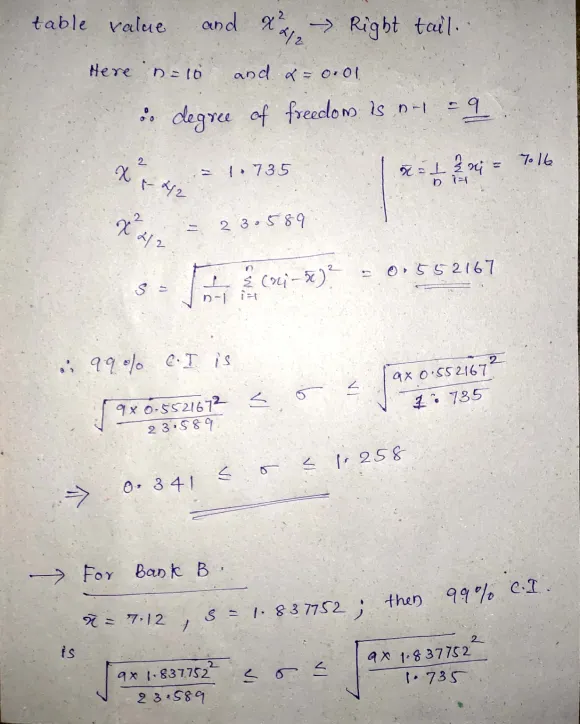 table value and χ²α/2 → Right tail.
Here n = 10 and α = 0.01
∴ degree of freedom is n-1 = 9
χ²1-α/2 = 1.735 | x̄ = 1/n Σⁿᵢ₌₁ xi = 7.16
χ²α/2 = 23.589
S = √(1/(n-1) Σⁿᵢ₌₁ (xi - x̄)²) = 0.552167
∴ 99% C.I is
√(9×0.552167²/23.589) ≤ σ ≤ √(9×0.552167²/1.735)
⇒ 0.341 ≤ σ ≤ 1.258
→ For Bank B.
x̄ = 7.12, S = 1.837752; then 99% C.I.
is √(9×1.837752²/23.589) ≤ σ ≤ √(9×1.837752²/1.735)